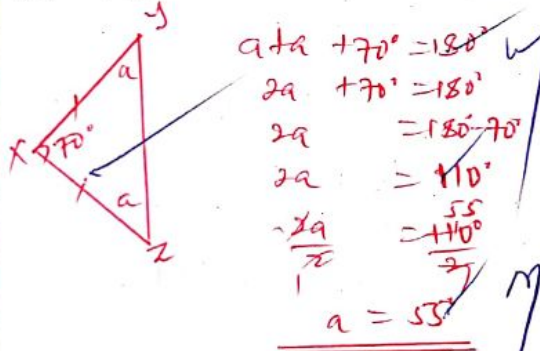 y
a
X 70°
a
Z
a+a +70° =180°
2a +70° =180°
2a =180°-70°
2a = 110°
55
2a/2 = 110°/2
1
a = 55°